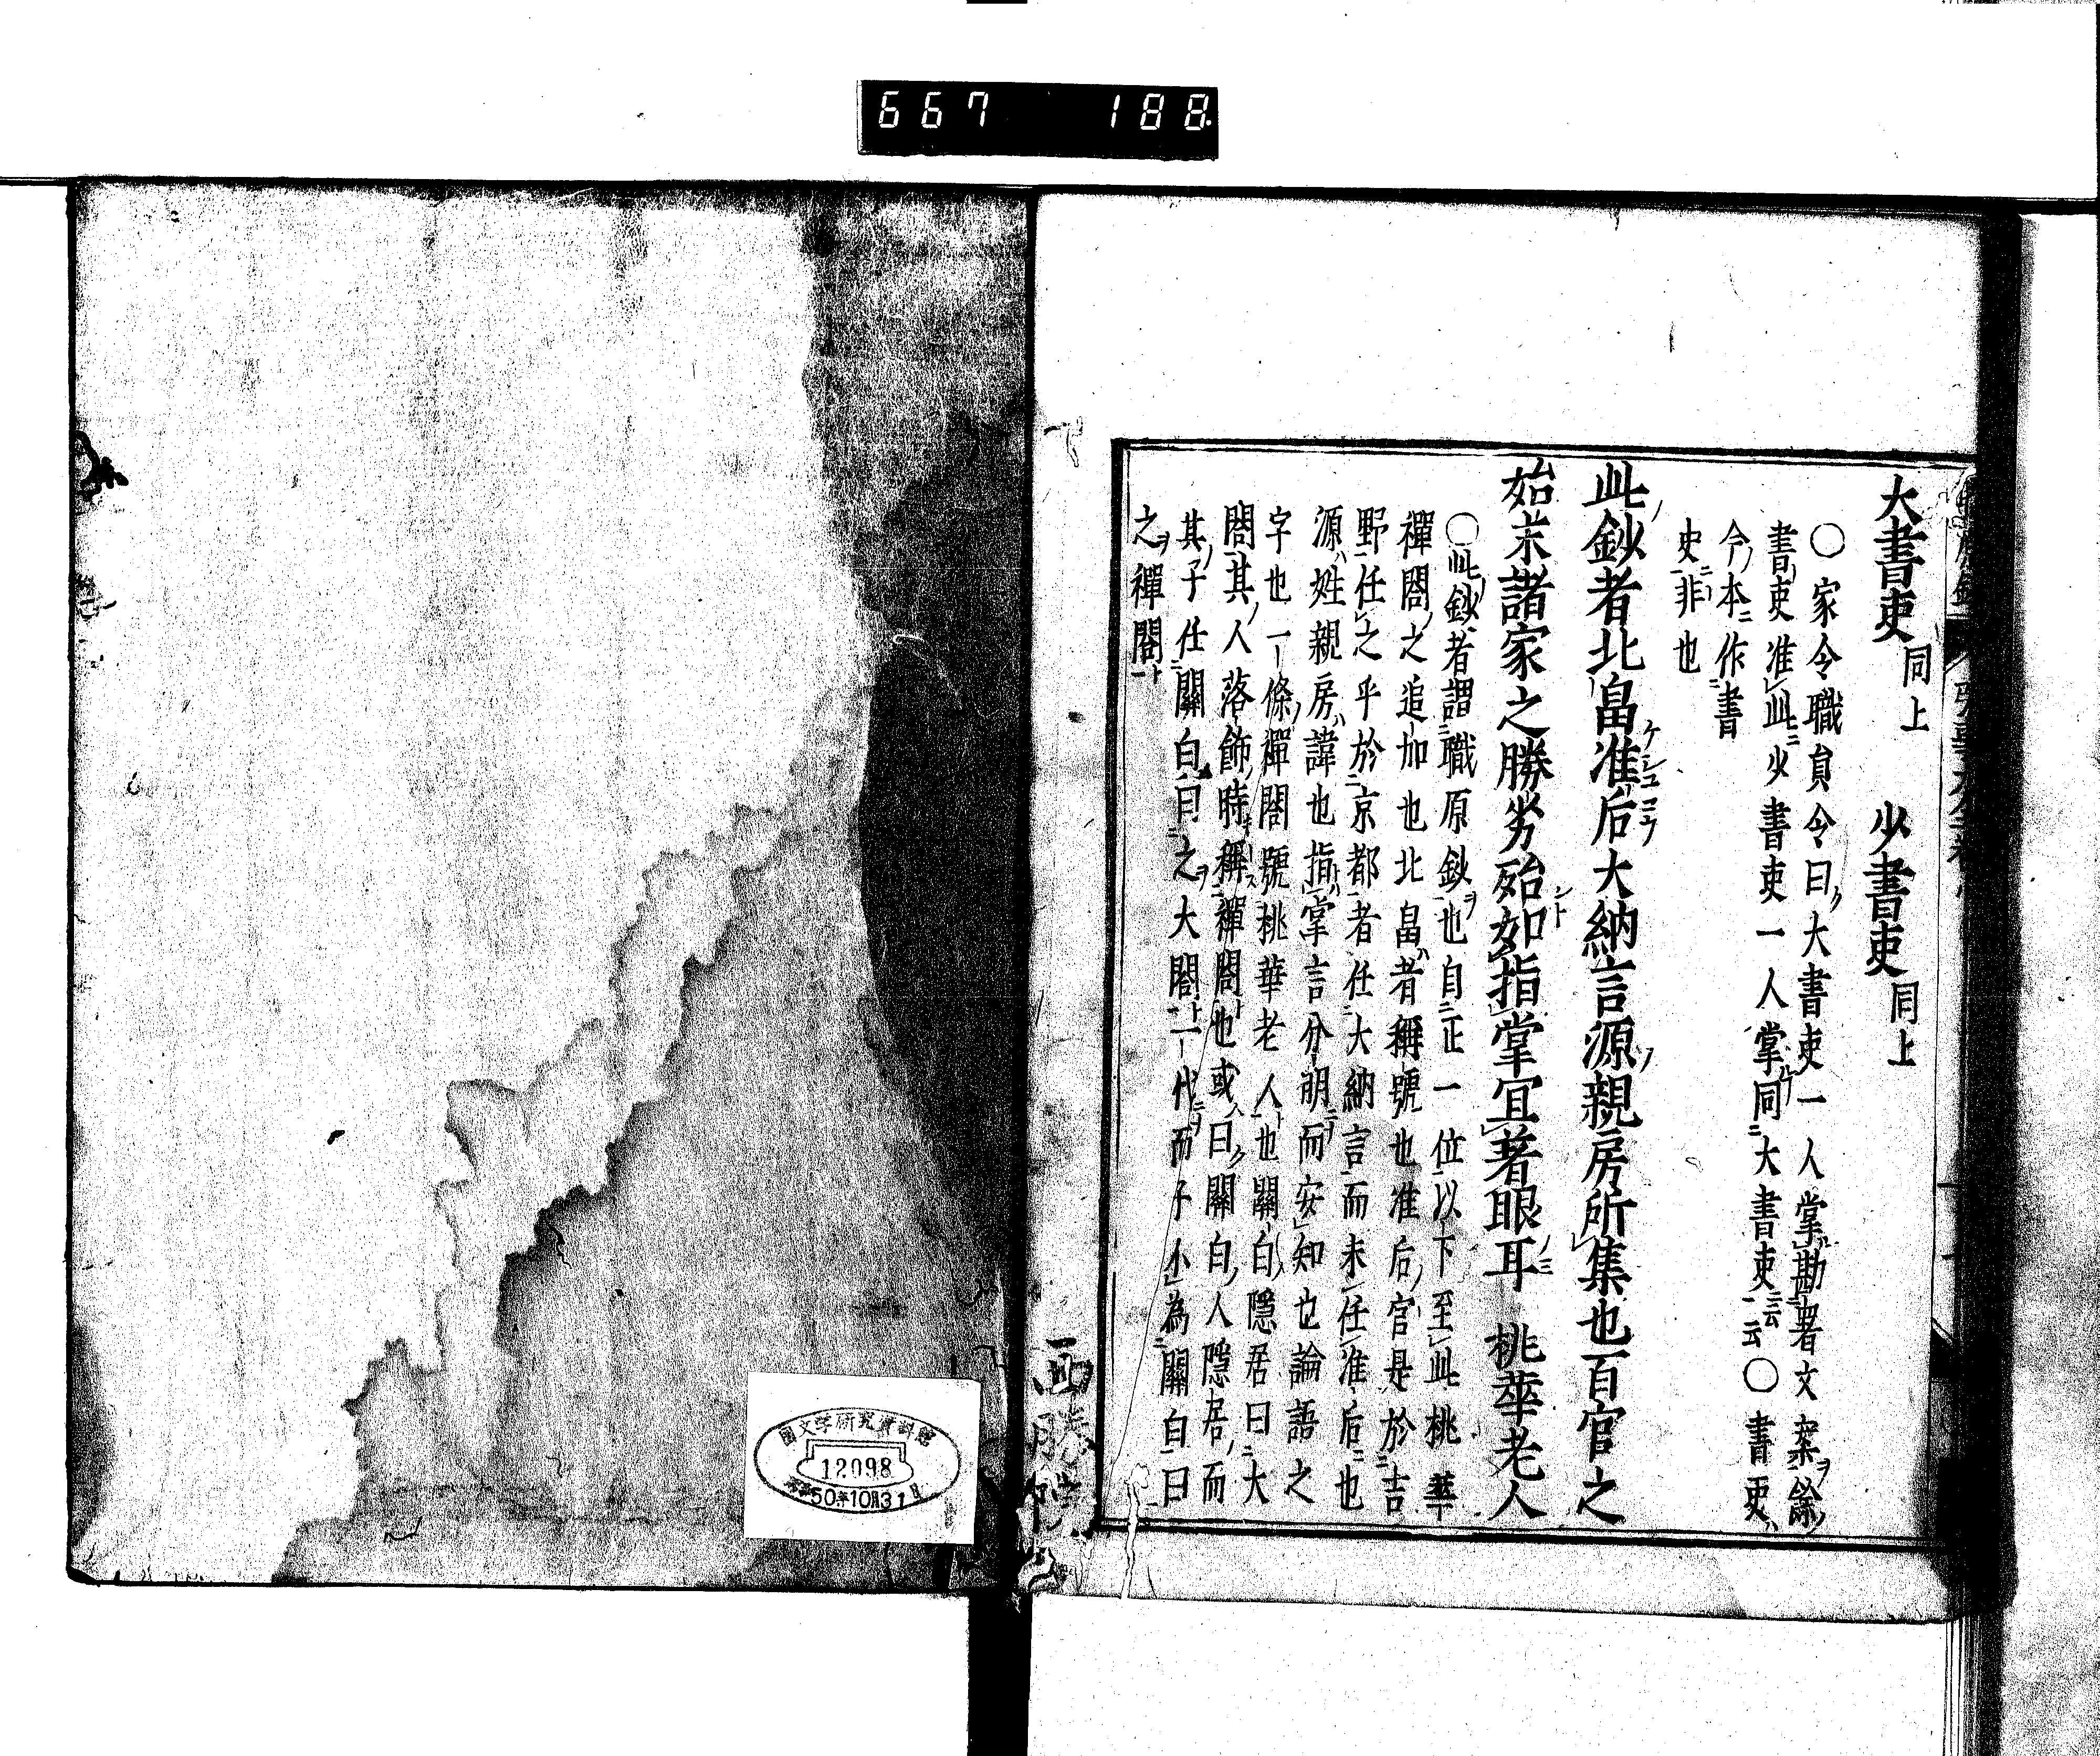 667 188
大書吏同上 少書吏同上
〇家令職員令曰大書吏一人掌勘署文案餘
書吏准此少書吏一人掌同大書吏云云〇書吏
今本作書
史非也
此鈔者北畠准后大納言源親房所集也百官之
始末諸家之勝劣殆如指掌宜著眼耳 桃華老人
〇此鈔者謂職原鈔也自正一位以下至此桃華
禪閤之追加也北畠者稱號也准后官是於吉
野任之乎於京都者任大納言而未任准后也
源姓親房諱也指掌言分明而安知也論語之
字也一條禪閤號桃華老人也關白隱居曰大
閤其人落飾時稱禪閤也或曰關白人隱居而
其子仕關白曰之大閤一代而子小為關白曰
之禪閤
國文学研究資料館
12098
昭和50年10月31日